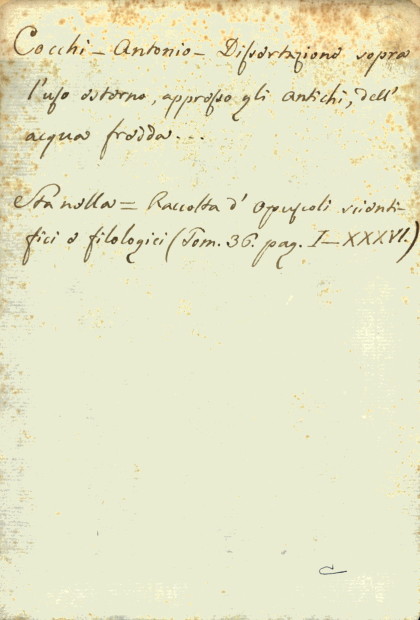 Cocchi - Antonio - Dissertazione sopra
l'uso esterno, appresso gli antichi, dell'
acqua fredda...
Sta nella = Raccolta d'Opuscoli scienti-
fici e filologici (Tom. 36. pag. I-XXXVI.)